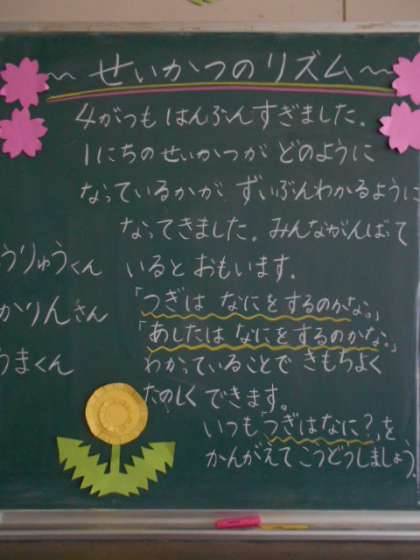 ～せいかつのリズム～
4がつも はんぶんすぎました。
1にちのせいかつが どのように
なっているかが ずいぶんわかるように
なってきました。みんながんばって
いると おもいます。
「つぎは なにをするのかな。」
「あしたは なにをするのかな。」
わかっていることで きもちよく
たのしく できます。
いつも「つぎはなに？」を
かんがえて こうどうしましょう
うりゅうくん
かりんさん
うまくん